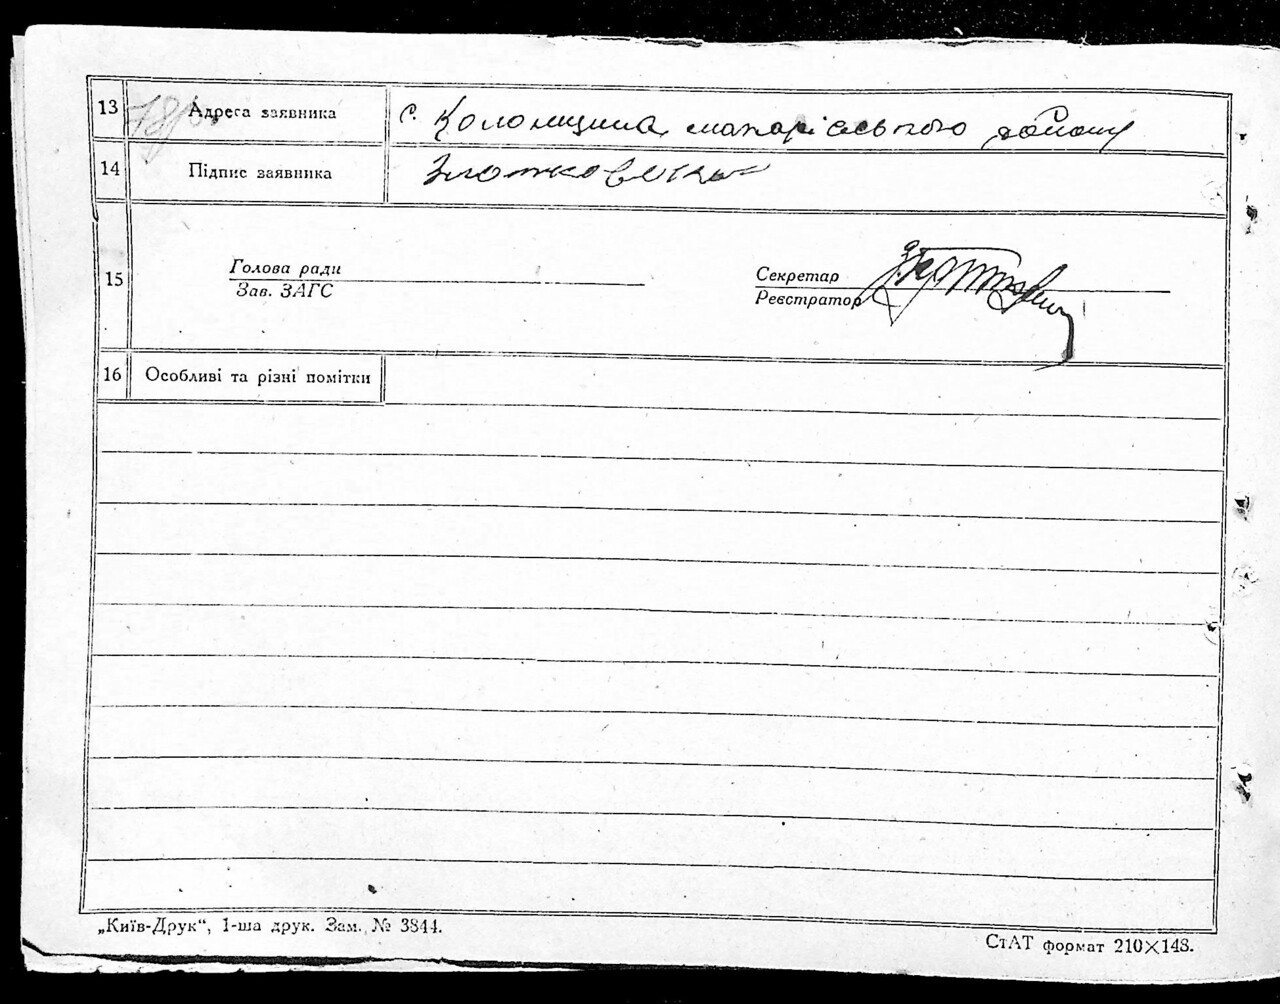 13 Адреса заявника с. Коломщина, макарівського району
14 Підпис заявника
15
Голова ради
Зав. ЗАГС
Секретар
Реєстратор
16 Особливі та різні помітки
„Київ-Друк“, 1-ша друк. Зам. № 3844.
СтАТ формат 210×148.